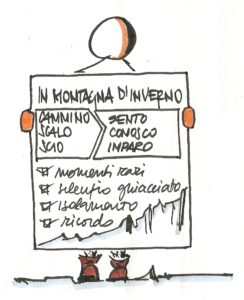 IN MONTAGNA D'INVERNO
CAMMINO SENTO
SCALO CONOSCO
SCIO IMPARO
momenti rari
silenzio ghiacciato
isolamento
ricordo